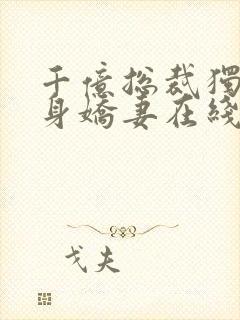 千億總裁獨
身嬌妻在綫
戈夫